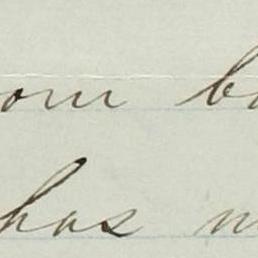 om b
has